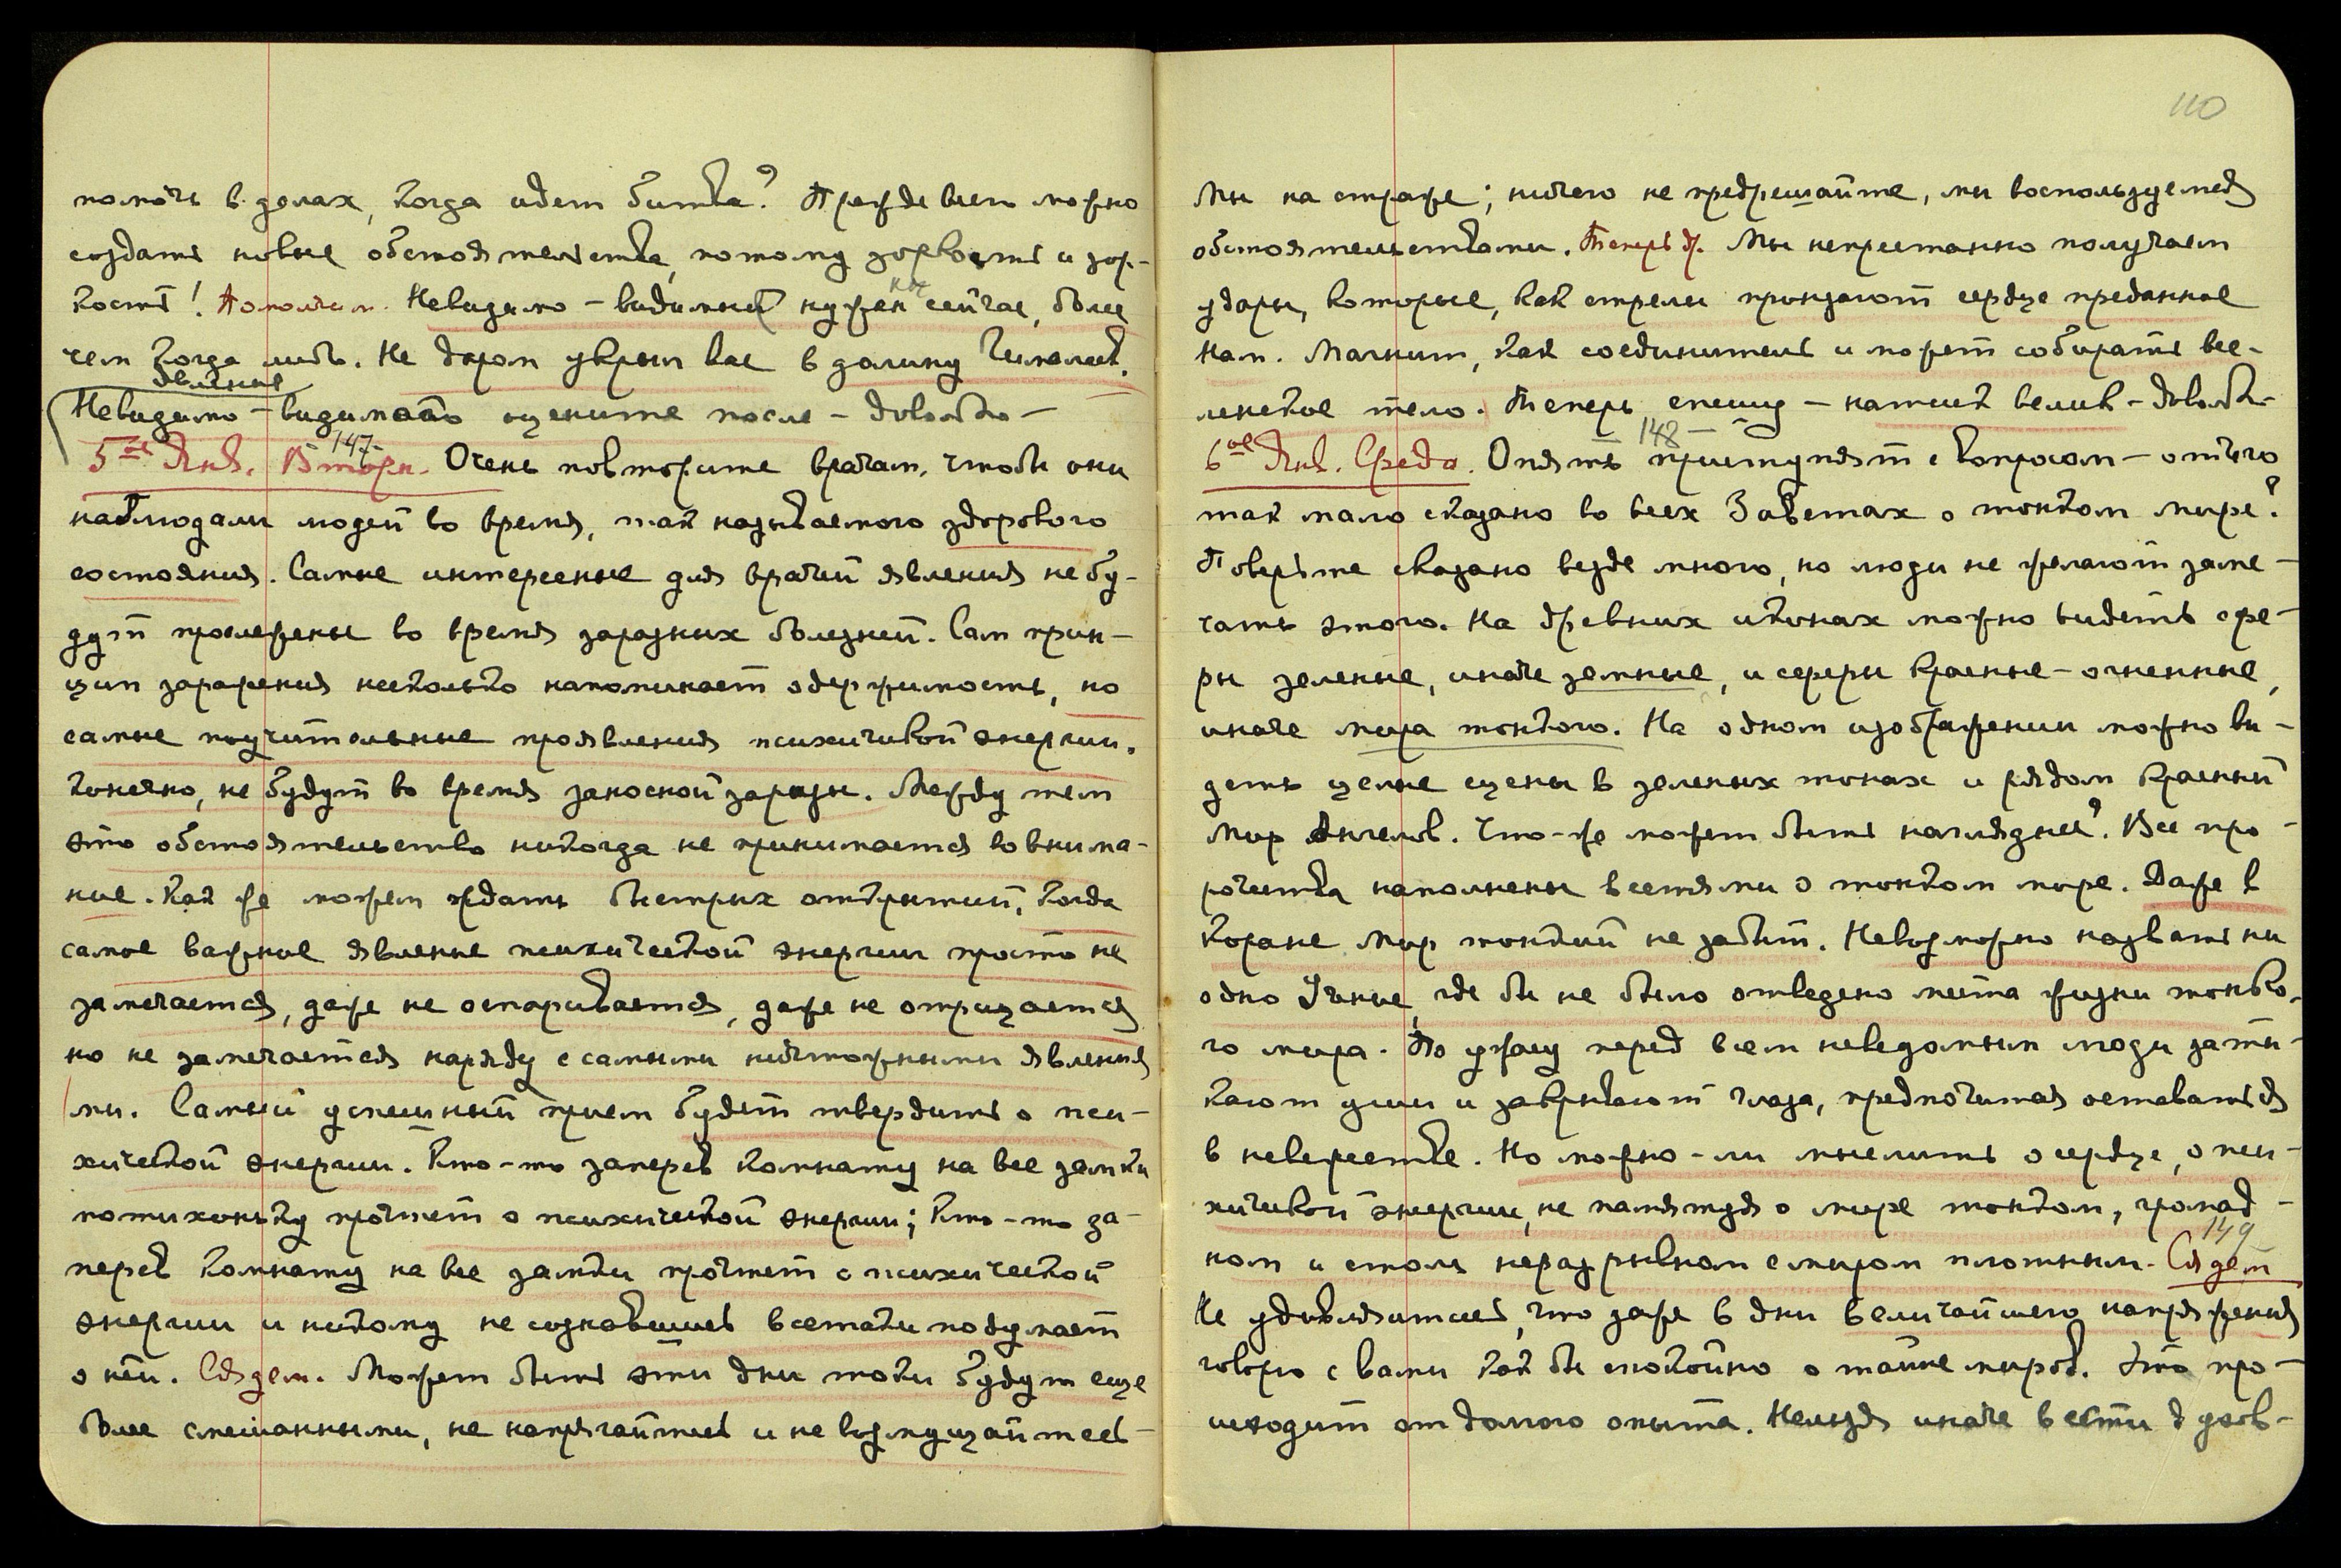 помочь в делах, когда идет битва? Прежде всего можно
создать новые обстоятельства, потому зоркость и зор-
кость! Помолчим. Невидимо-видимый нужен сейчас, более
чем когда либо. Не даром укрыл вас в долину Гималаев.
явленные
Невидимо-видимого оцените после - довольно -
147.
5ое Янв. Вторн. Очень повторите врачам, чтобы они
наблюдали людей во время, так называемого здорового
состояния. Самые интересные для врачей явления не бу-
дут прослежены во время заразных болезней. Сам прин-
цип заражения несколько напоминает одержимость, но
самые поучительные проявления психической энергии,
конечно, не будут во время заносной заразы. Между тем
это обстоятельство никогда не принимается во внима-
ние. Как же можем ждать быстрых открытий, когда
самое важное явление психической энергии просто не
замечается, даже не оспаривается, даже не отрицается
но не замечается наряду с самыми ничтожными явления
ми. Самый успешный прием будет твердить о пси-
хической энергии. Кто-то заперев комнату на все замки
потихоньку прочтет о психической энергии; Кто-то за-
перев комнату на все замки прочтет о психической
энергии и никому не сознавшись всетаки подумает
о ней. Сядем. Может быть эти дни токи будут еще
более смешанными, не напрягайтесь и не возмущайтесь -
110
Мы на страже; ничего не предрешайте, мы воспользуемся
обстоятельствами. Теперь др. Мы непрестанно получаем
удары, которые, как стрелы пронзают сердце преданное
Нам. Магнит, как соединитель и может собирать все-
ленское тело. Теперь спешу - натиск велик - довольно -
148
6ое Янв. Среда. Опять приступят с вопросом - отчего
так мало сказано во всех Заветах о тонком мире?
Поверьте сказано везде много, но люди не желают заме-
чать этого. На древних иконах можно видеть сфе-
ры зеленые, иначе земные, и сферы красные - огненные,
иначе мира тонкого. На одном изображении можно ви-
деть целые сцены в зеленых тонах и рядом красный
мир Ангелов. Что-же может быть нагляднее? Все про-
рочества наполнены вестями о тонком мире. Даже в
Коране Мир тонкий не забыт. Невозможно назвать ни
одно Учение, где бы не было отведено места жизни тонко-
го мира. По ужасу перед всем неведомым люди заты-
кают уши и закрывают глаза, предпочитая оставаться
в невежестве. Но можно-ли мыслить о сердце, о пси-
хической энергии, не памятуя о мире тонком, громад-
ном и столь неразрывном с миром плотным. Сядем
149
Не удивляйтесь, что даже в дни величайшего напряжения
говорю с вами как бы спокойно о тайне миров. Это про-
исходит от долгого опыта. Нельзя иначе вести